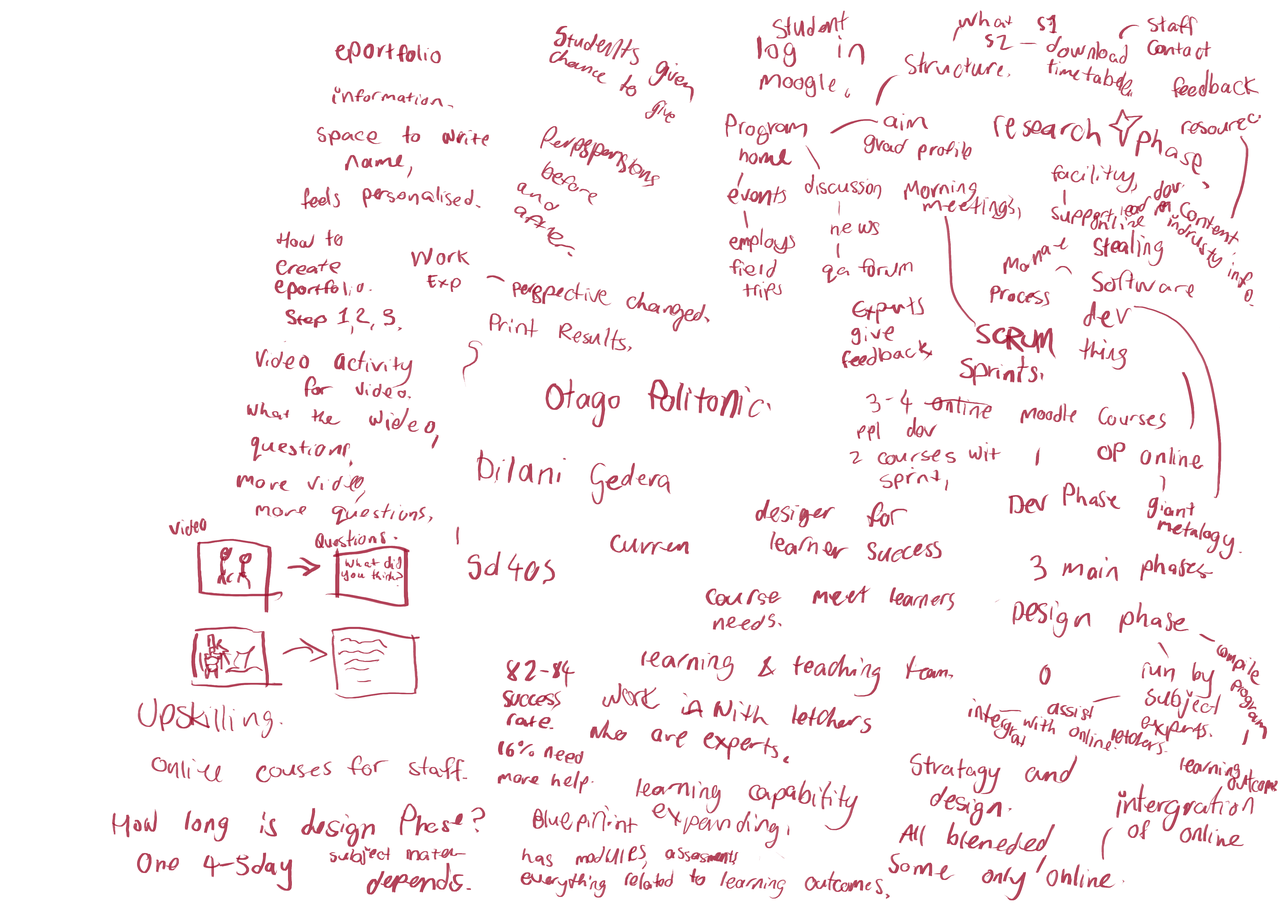 eportfolio
information.
space to write
name,
feels personalised.
How to
create
eportfolio.
Step 1, 2, 3.
Video activity
for video.
what the wideo,
questions,
more video,
more questions,
Students given
chance to
give
Perpspensions
before
and
after.
Work
Exp
perspective changed.
Print Results,
Otago Politonic.
Dilani Gedera
Student
log in
moogle.
Program
home
events
employs
field
trips
aim
grad profile
structure.
what S1
S2 — download
timetable,
staff
contact
feedback
discussion
news
qa forum
Morning
meetings,
research phase
resourec
facility,
support
online
content
indrusty info.
stealing
Software
dev
thing
process
Experts
give
feedback
SCRUM
Sprints.
3-4 online moodle courses
ppl dev
2 courses wit
sprint,
1 OP online
Dev Phase
giant
metalogy.
3 main phases
Design phase
compile
program
learning
outcome
run by
subject
experts.
assist
intergrat with online letchers.
0
intergration
of online
video
Questions.
What did
you think?
gd 40s
curren
desiger for
learner success
course meet learners
needs.
82-84
success
rate.
16% need
more help.
learning & teaching team.
work in with letchers
who are experts.
learning capability
expanding.
Blueprint
has modules, assesments
everything related to learning outcomes,
Stratagy and
design.
All bleneded
Some only online.
Upskilling.
online couses for staff.
How long is design Phase?
One 4-5day
subject mater
depends.